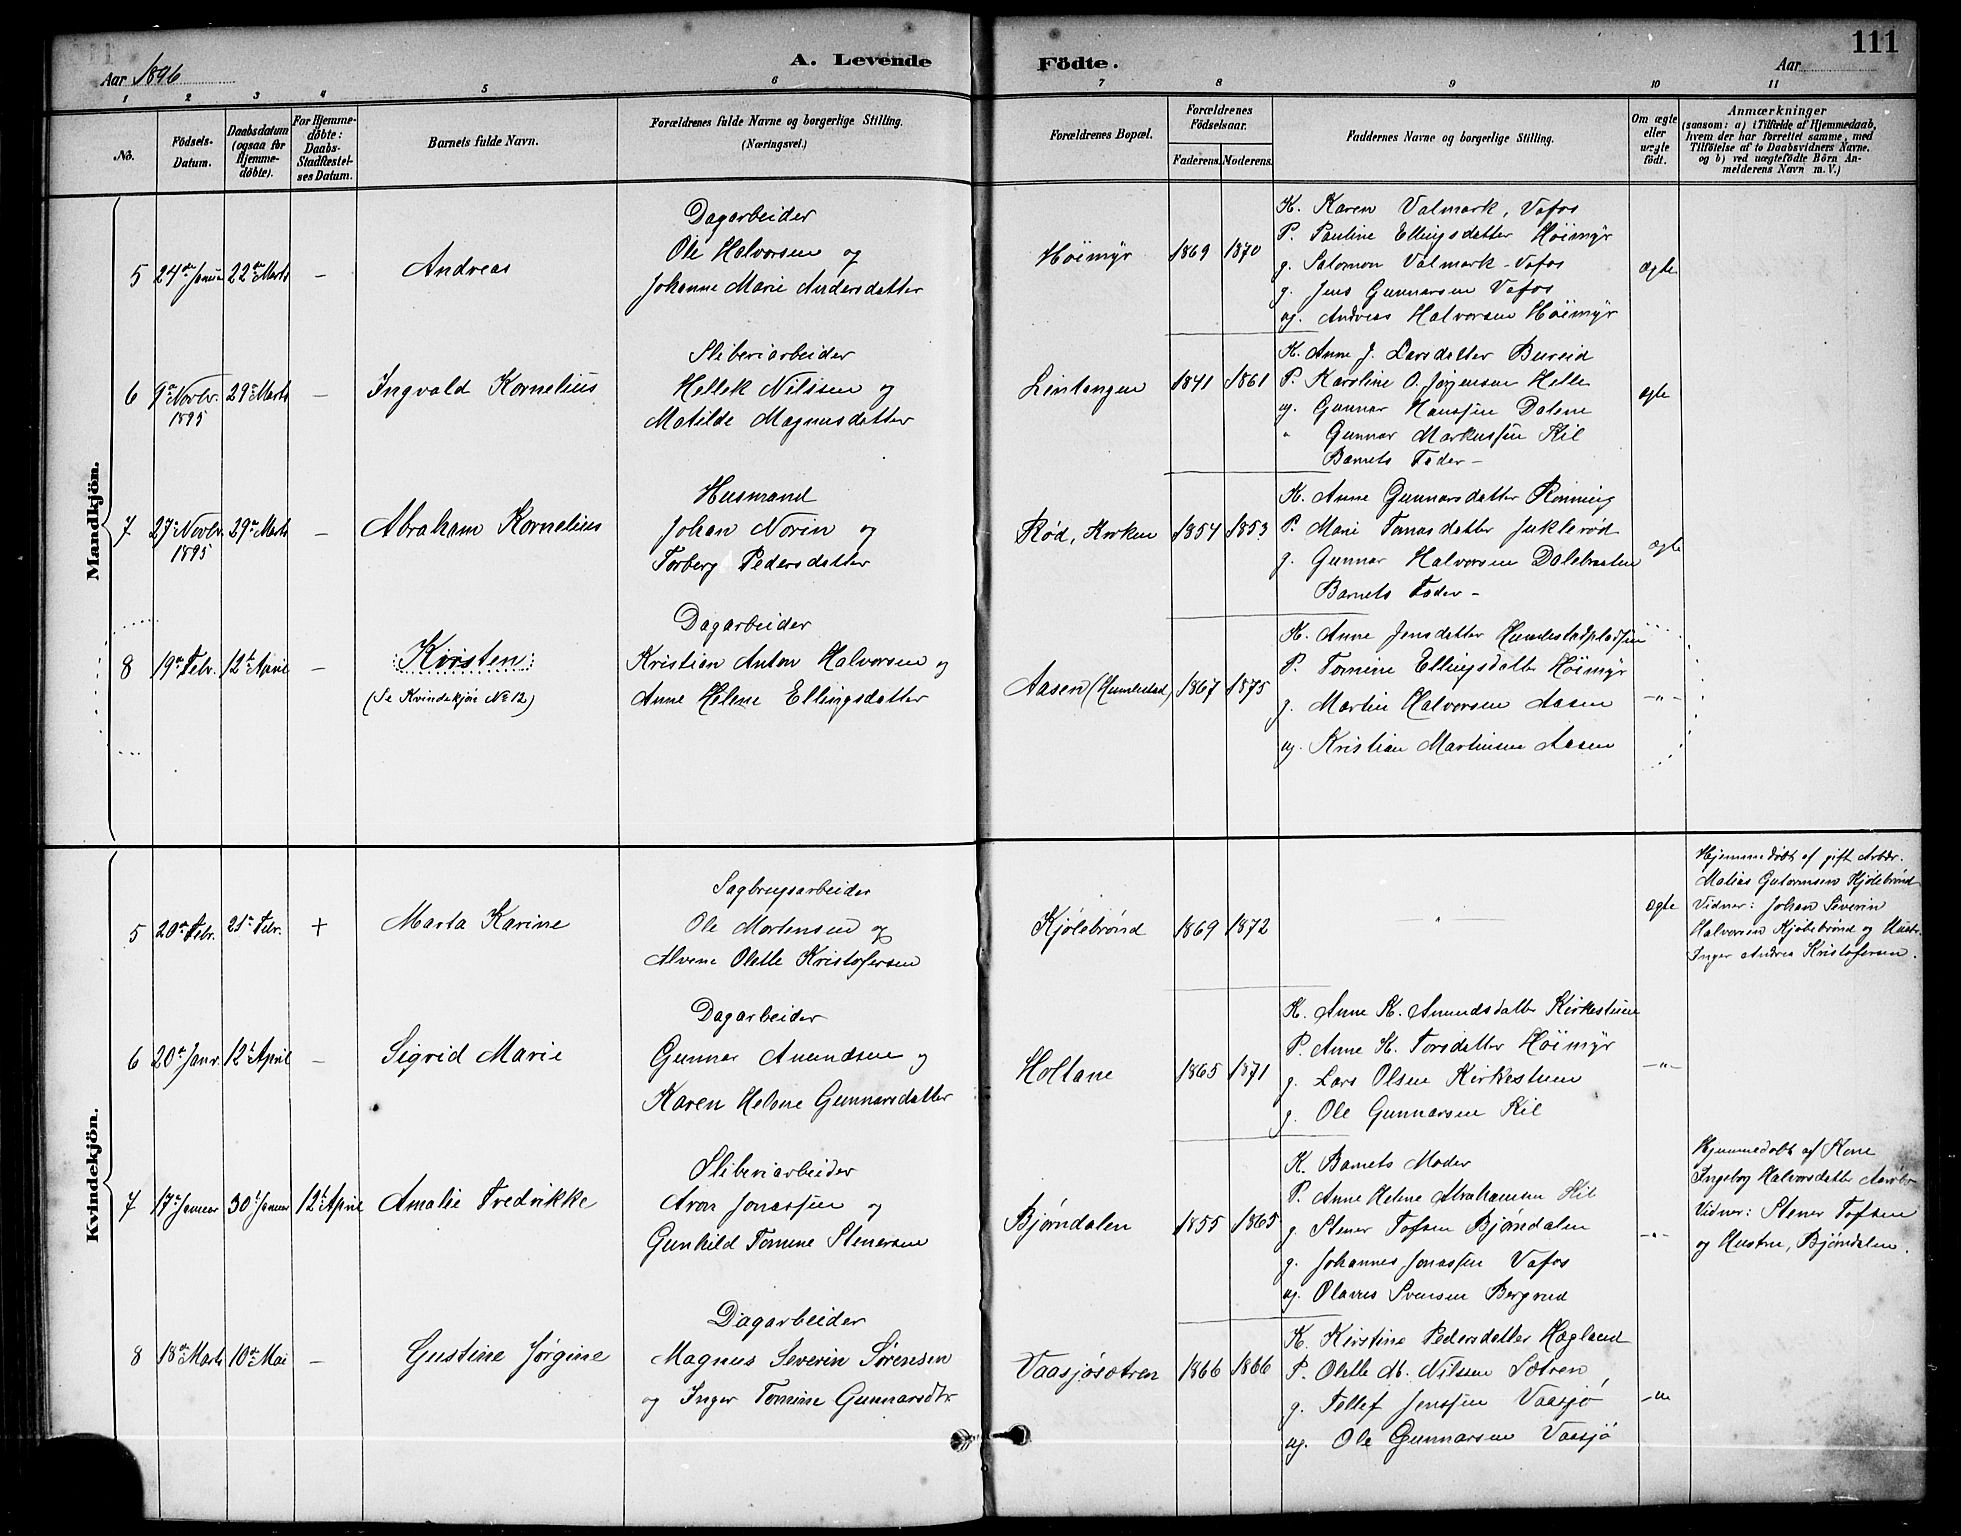 111
Aar 1896
A. Levende Födte.
Aar
1 2 3 4 5 6 7 8 9 10 11
No.
Födsels-Datum.
Daabsdatum (ogsaa for Hjemme-døbte).
For Hjemme-døbte: Daabs-Stadfæstel-ses Datum.
Barnets fulde Navn.
Forældrenes fulde Navne og borgerlige Stilling.
(Næringsvei.)
Forældrenes Bopæl.
Forældrenes Födselsaar.
Faderens. Moderens.
Faddernes Navne og borgerlige Stilling.
Om ægte eller uægte födt.
Anmærkninger
(saasom: a) i Tilfælde af Hjemmedaab,
hvem der har forrettet samme, med
Tilföielse af to Daabsvidners Navne.
og b) ved uægtefödte Börn An-
melderens Navn m. V.)
Mandkjön.
5 24de Januar 22de Marts – Andreas
Dagarbeider
Ole Halvorsen og
Johanne Marie Andersdatter
Höimyr 1869 1870
K. Karen Valmark, Vafos
P. Pauline Ellingsdatter Höimyr
g. Salomon Valmark - Vafos
g. Jens Gunnarsen Vafos
ug. Andreas Halvorsen Höimyr
ægte
6 9de Novbr. 1895 29de Marts – Ingvald Kornelius
Sliberiarbeider
Hellek Nilssen og
Matilde Magnusdatter
Lintangen 1841 1861
K. Anne J. Larsdatter Bureid
P. Karoline O. Jørgensen Helle
ug. Gunnar Hanssen Dalene
" Gunnar Markussen Kil
Barnets Fader –
ægte
7 27de Novbr. 1895 29de Marts – Abraham Kornelius
Husmand
Johan Norin og
Torberg Pedersdatter
Rød, Kirken 1854 1853
K. Anne Gunnarsdatter Rönning
P. Marie Tomasdatter Juklerød
g. Gunnar Halvorsen Dalebraaten
Barnets Fader –
ægte
8 19de Febr. 12te April – Kirsten
(Se Kvindekjön No 12)
Dagarbeider
Kristian Anton Halvorsen og
Anne Helene Ellingsdatter
Aasen (Humlestad) 1867 1875
K. Anne Jensdatter Humlestadpladsen
P. Tomine Ellingsdatter Höimyr
g. Martin Halvorsen Aasen
ug. Kristian Martinsen Aasen
–"–
Kvindekjön.
5 20de Febr. 21de Febr. + Marta Karine
Sagbrugsarbeider
Ole Mortensen og
Alvene Olette Kristofersen
Kjølebrønd 1869 1872
"
ægte
Hjemmedöbt af gift Arbdr.
Matias Gutormsen Kjølebrønd
Vidner: Johan Severin
Halvorsen Kjølebrønd og Hustr.
Inger Andrea Kristofersen.
6 20de Janr. 12te April – Sigrid Marie
Dagarbeider
Gunnar Amundsen og
Karen Helene Gunnarsdatter
Holtane 1865 1871
K. Anne K. Amundsdatter Kirkestuen
P. Anne K. Torsdatter Höimyr
g. Lars Olsen Kirkestuen
g. Ole Gunnarsen Kil
–"–
7 17de Januar 30te Januar 12te April Amalie Fredrikke
Sliberiarbeider
Aron Jonassen og
Gunhild Tomine Stenersen
Bjørndalen 1855 1865
K. Barnets Moder
P. Anne Helene Abrahamsen Kil
g. Stener Tofsen Bjørndalen
g. Johannes Jonassen Vafos
ug. Olaves Svensen Bergrud
–"–
Hjemmedøbt af Kone
Ingebog Halvorsdatter
Vidner: Stener Tofsen
og Hustru, Bjørndalen.
8 18de Marts 10de Mai – Gustine Jørgine
Dagarbeider
Magnus Severin Sørensen
og Inger Tomine Gunnarsdtr.
Vaasjøsætren 1866 1866
K. Kirstine Pedersdatter Hagland
P. Olette M. Nilssen Sætren
g. Tellef Jenssen Vaasjø
ug. Ole Gunnarsen Vaasjö
–"